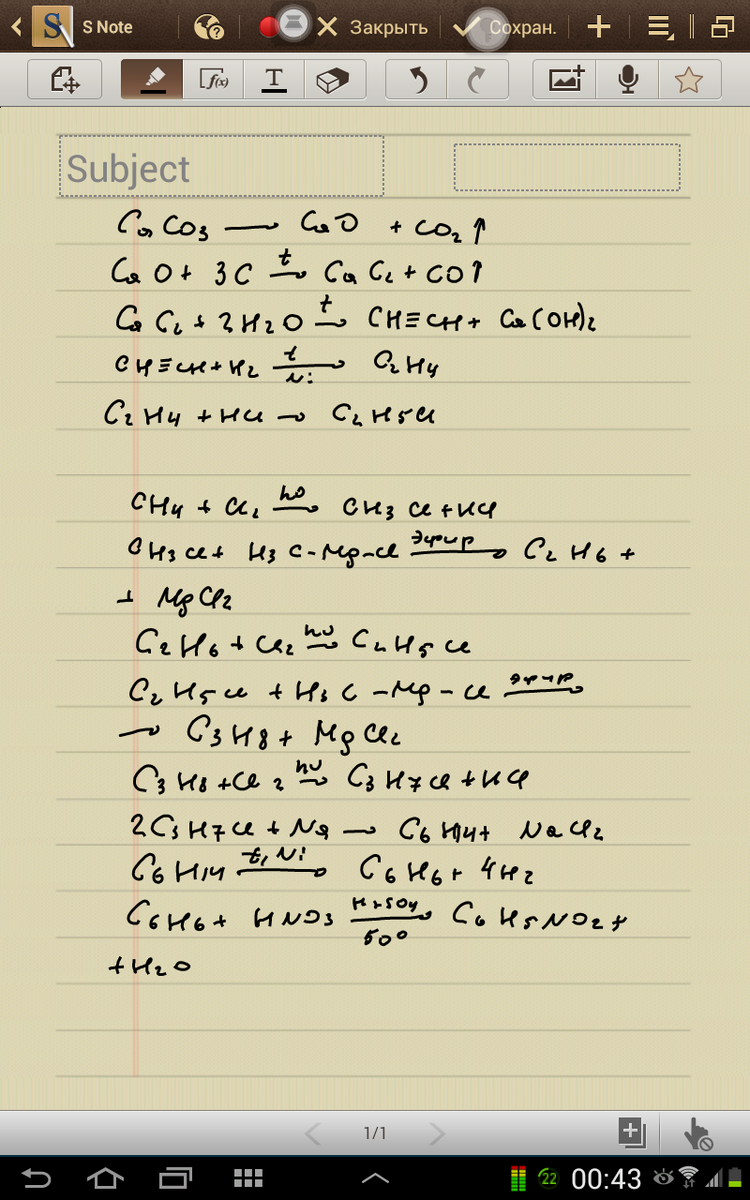 S Note
Закрыть
Сохран.
f(x)
T
Subject
CaCO3 → CaO + CO2↑
CaO + 3C →t CaC2 + CO↑
CaC2 + 2H2O →t CH≡CH + Ca(OH)2
CH≡CH + H2 →t Ni C2H4
C2H4 + HCl → C2H5Cl
CH4 + Cl2 →hν CH3Cl + HCl
CH3Cl + H3C-Mg-Cl →эфир C2H6 +
+ MgCl2
C2H6 + Cl2 →hν C2H5Cl
C2H5Cl + H3C-Mg-Cl →эфир
→ C3H8 + MgCl2
C3H8 + Cl2 →hν C3H7Cl + HCl
2C3H7Cl + Na → C6H14 + NaCl2
C6H14 →t, Ni C6H6 + 4H2
C6H6 + HNO3 →H2SO4 50° C6H5NO2 +
+ H2O
1/1
22
00:43